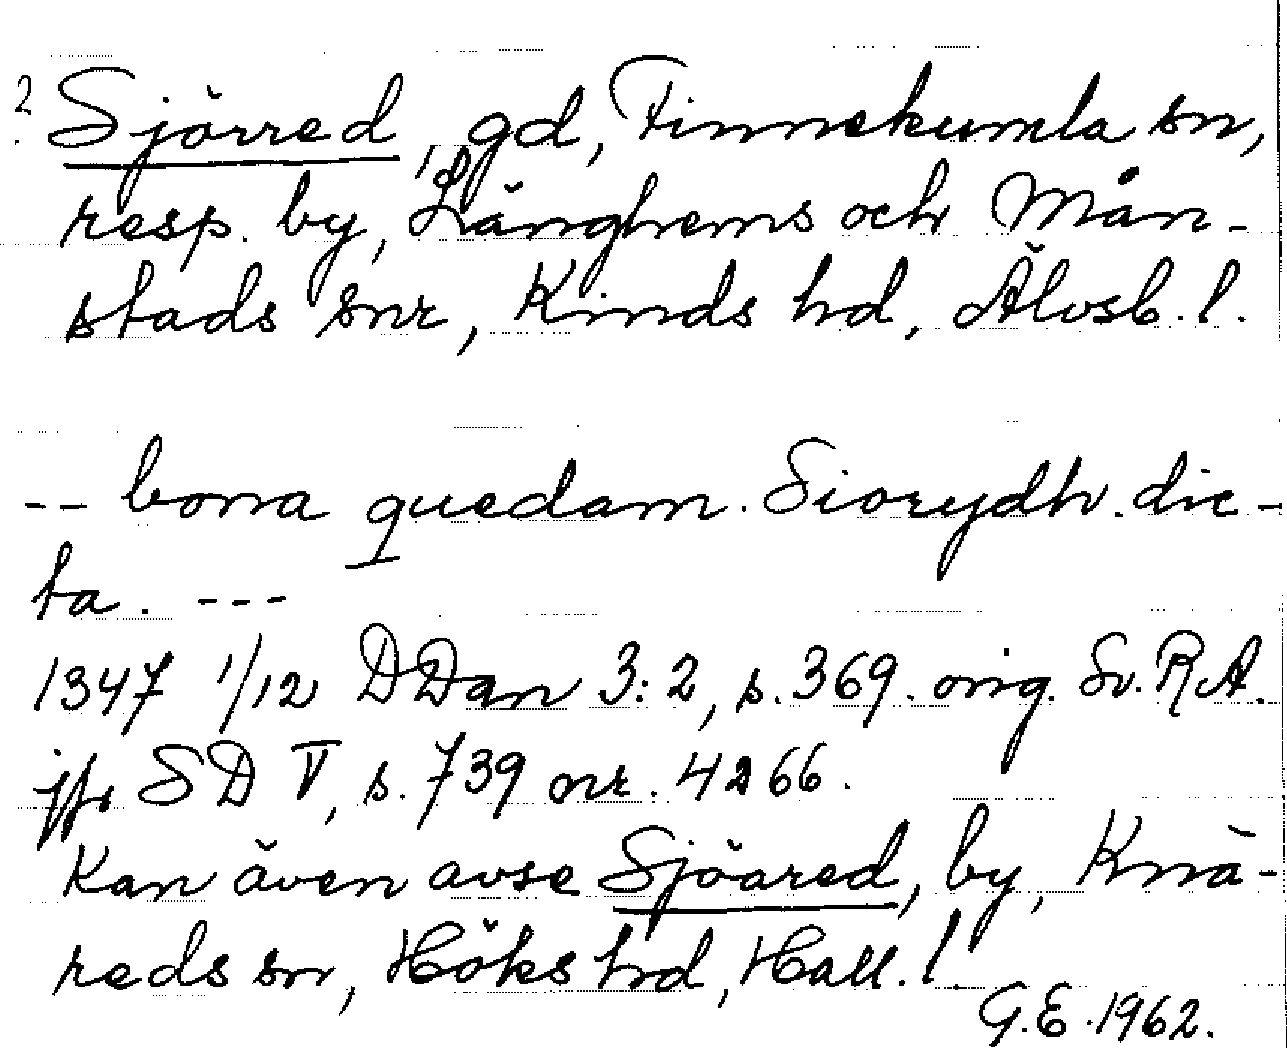 ? Sjörred, gd, Finnekumla sn,
resp. by, Länghems och Mån-
stads snr, Kinds hd, Älvsb. l.
-- bona quedam. Siorydh. dic-
ta. ---
1347 1/12 DDan 3:2, s. 369. orig. Sv. RA.
jfr SD V, s. 739 nr. 4266.
Kan även avse Sjöared, by, Knä-
reds sn, Höks hd, Hall. l.
G.E. 1962.